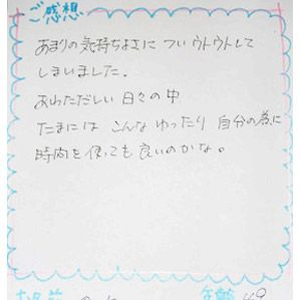 ご感想
あまりの気持ちよさに ついウトウトして
しまいました。
あわただしい 日々の中
たまには こんな ゆったり 自分の為に
時間を使っても良いのかな。